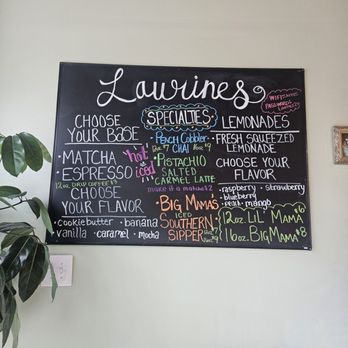 Lawrines
CHOOSE
YOUR BASE
• MATCHA
• ESPRESSO
hot
iced
12oz. DRIP COFFEE $3
CHOOSE
YOUR FLAVOR
• cookie butter • banana
vanilla • caramel • mocha
SPECIALTIES
• Peach Cobbler
CHAI
• PISTACHIO
SALTED
CARAMEL LATTE
make it a matcha
• BIG MAMA'S
ICED
SOUTHERN
SIPPER
LEMONADES
• FRESH SQUEEZED
LEMONADE
CHOOSE YOUR
FLAVOR
• raspberry • strawberry
• blueberry
• peach • mango
12oz. LIL' MAMA $6
16oz. BIG MAMA $8